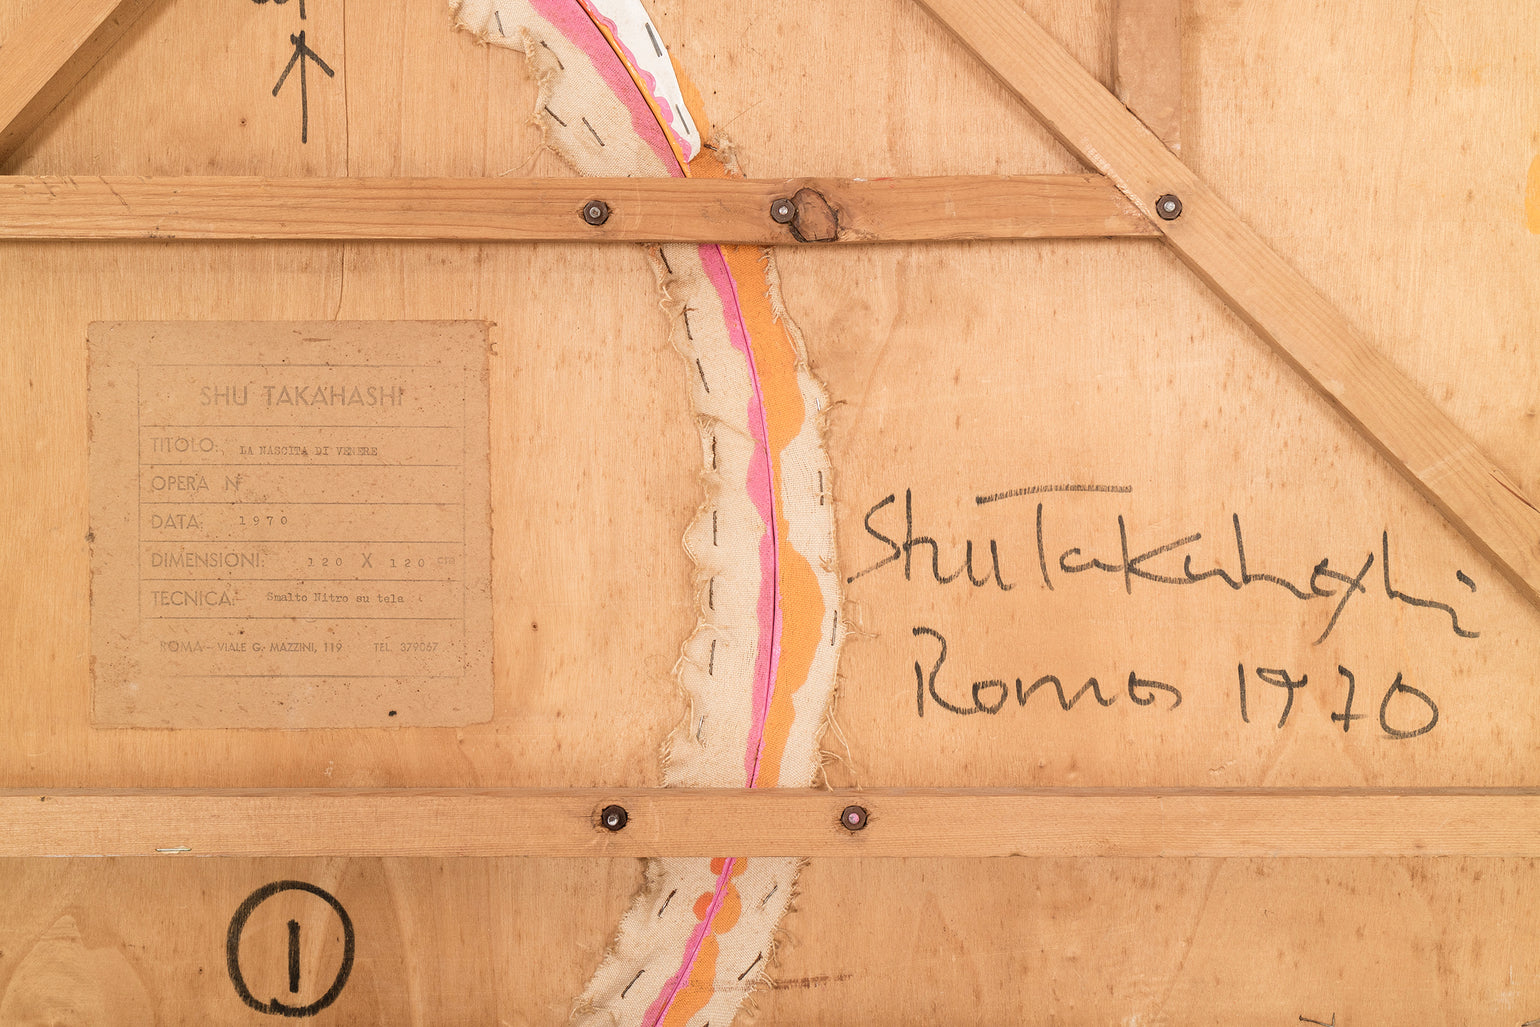 SHU TAKAHASHI
TITOLO: LA NASCITA DI VENERE
OPERA N°
DATA: 1970
DIMENSIONI: 120 X 120 CM
TECNICA: Smalto Nitro su tela
ROMA - VIALE G. MAZZINI, 119 TEL. 379067
Shu Takahashi
Roma 1970
1